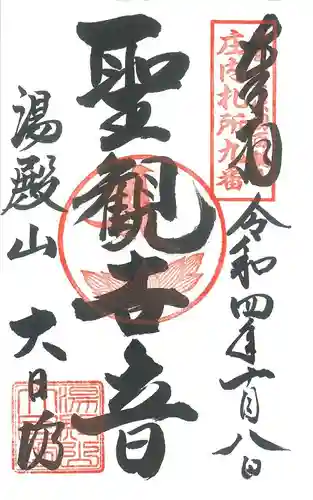 奉拝
庄内札所九番
令和四年十月八日
聖観世音
湯殿山
大日坊